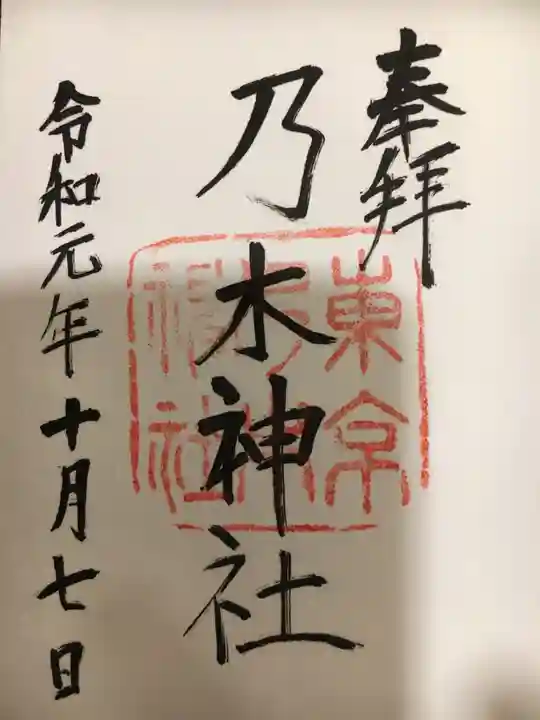 奉拝
乃木神社
東京乃木神社
令和元年十月七日